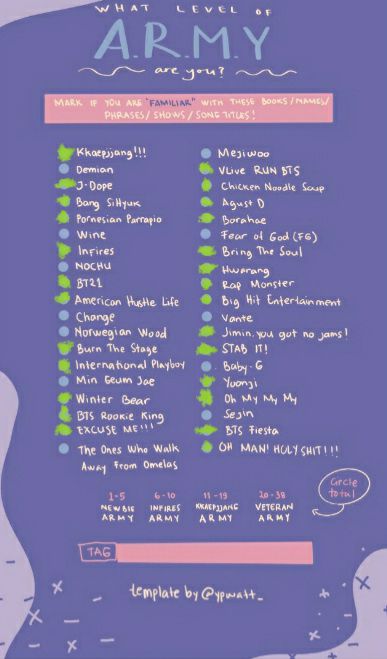 WHAT LEVEL OF
A.R.M.Y
are you?
MARK IF YOU ARE "FAMILIAR" WITH THESE BOOKS/NAMES/
PHRASES/SHOWS/SONG TITLES!
Kkaepjjang!!!
Demian
J-Dope
Bang SiHyuk
Pornesian Parrapio
Wine
Infires
NOCHU
BT21
American Hustle Life
Change
Norwegian Wood
Burn The Stage
International Playboy
Min Geum Jae
Winter Bear
BTS Rookie King
EXCUSE ME!!!
The Ones Who Walk
Away From Omelas
Mejiwoo
VLive RUN BTS
Chicken Noodle Soup
Agust D
Borahae
Fear of God (FG)
Bring The Soul
Hwarang
Rap Monster
Big Hit Entertainment
Vante
Jimin. you got no jams!
STAB IT!
Baby-G
Yoonji
Oh My My My
Sejin
BTS Fiesta
OH MAN! HOLY SHIT!!!
Circle
total
1-5
NEWBIE
ARMY
6-10
INFIRES
ARMY
11-19
KKAEPJJANG
ARMY
20-38
VETERAN
ARMY
TAG
template by @ypwatt_